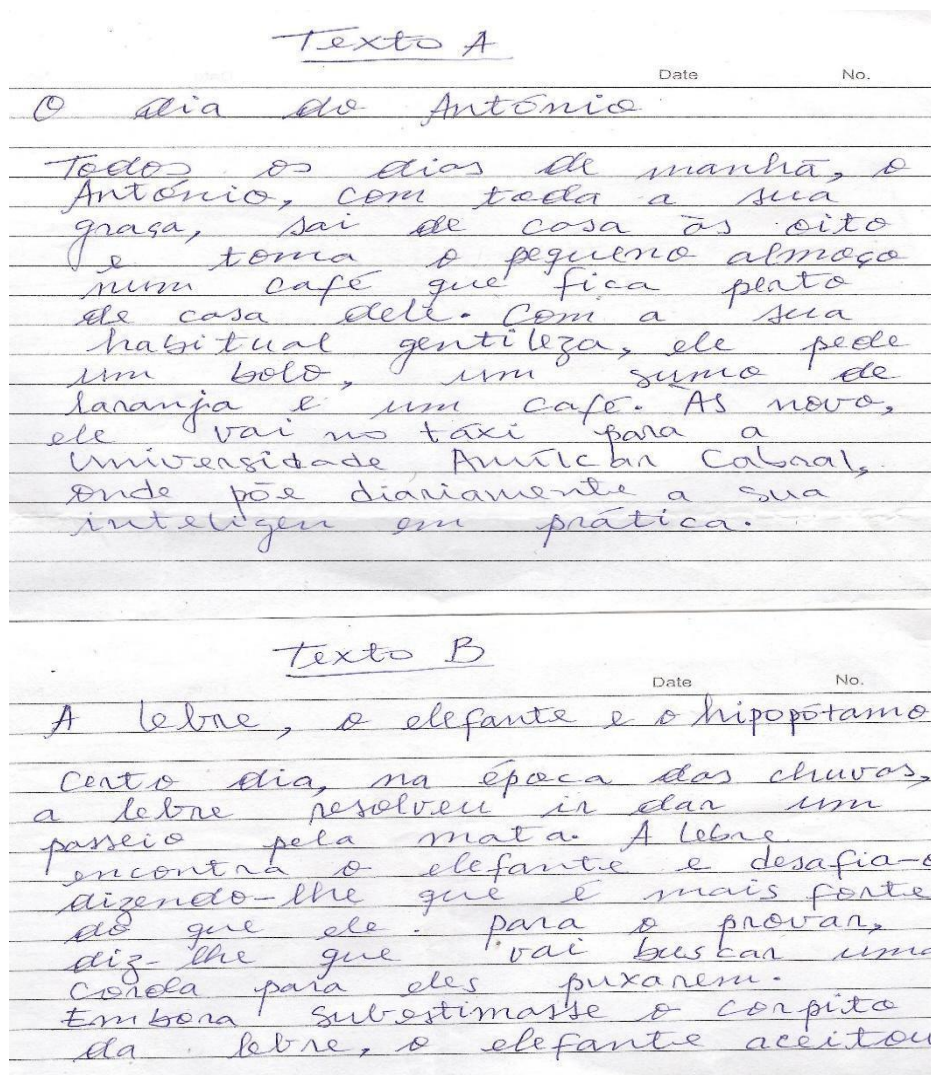 Texto A
Date No.
O dia do António
Todos os dias de manhã, o
António, com toda a sua
graça, sai de casa às oito
e toma o pequeno almoço
num café que fica perto
de casa dele. Com a sua
habitual gentileza, ele pede
um bolo, um sumo de
laranja e um café. As novo,
ele vai no táxi para a
Universidade Amílcbar Cabral,
onde põe diariamente a sua
inteligen em prática.
Texto B
Date No.
A lebre, o elefante e o hipopótamo
Certo dia, na época das chuvas,
a lebre resolveu ir dar um
passeio pela mata. A lebre
encontra o elefante e desafia-o
dizendo-lhe que é mais forte
do que ele. para o provar,
diz-lhe que vai buscar uma
corda para eles puxarem.
Embora subestimasse o corpito
da lebre, o elefante aceitou